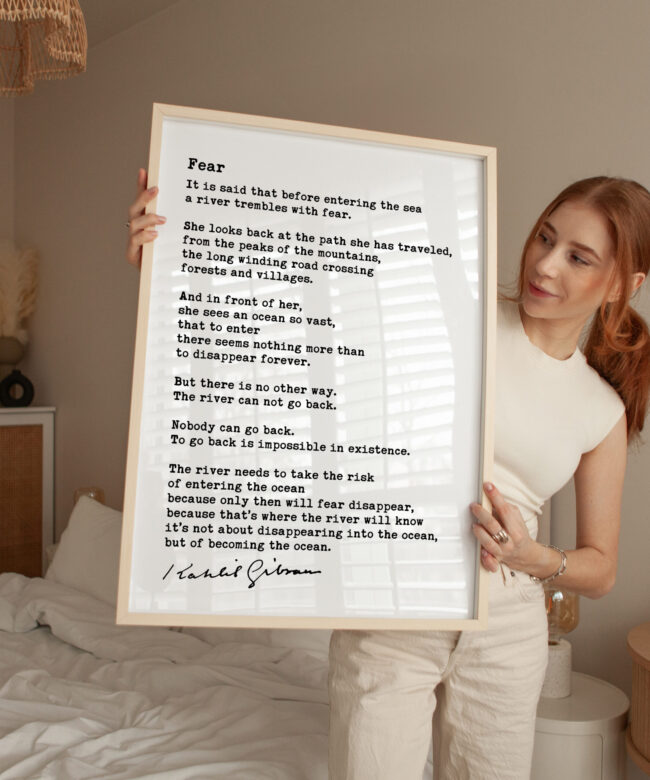 Fear
It is said that before entering the sea
a river trembles with fear.
She looks back at the path she has traveled,
from the peaks of the mountains,
the long winding road crossing
forests and villages.
And in front of her,
she sees an ocean so vast,
that to enter
there seems nothing more than
to disappear forever.
But there is no other way.
The river can not go back.
Nobody can go back.
To go back is impossible in existence.
The river needs to take the risk
of entering the ocean
because only then will fear disappear,
because that's where the river will know
it's not about disappearing into the ocean,
but of becoming the ocean.
Kahlil Gibran